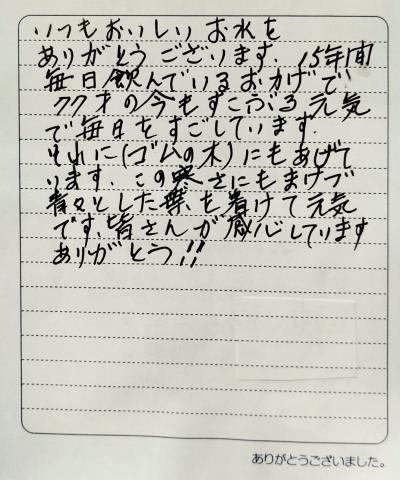 いつもおいしいお水を
ありがとうございます. 15年間
毎日飲んでいるおかげで
77才の今もすこぶる元気
で毎日をすごしています.
それに(ゴムの木)にもあげて
います. この寒さにもまけづ
青々とした葉を着けて元気
です. 皆さんが感心しています
ありがとう!!
ありがとうございました。